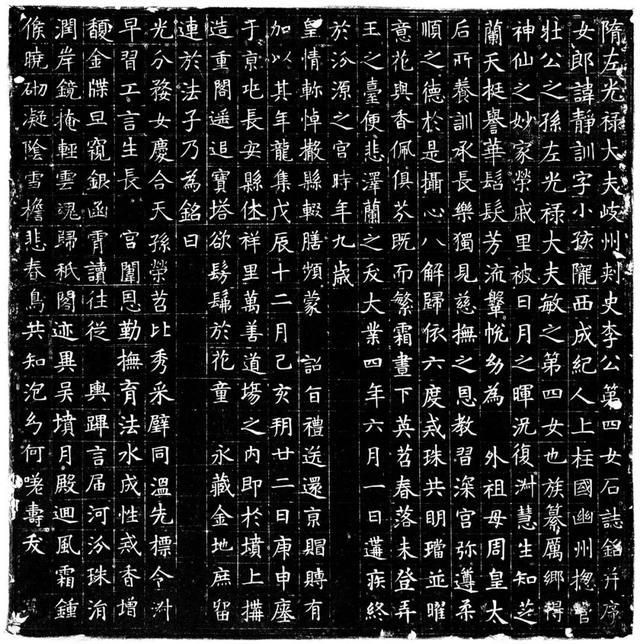 隋左光禄大夫岐州刺史李公第四女石誌銘并序
女郎諱靜訓字小孩隴西成紀人上柱國幽州揔管
壯公之孫左光禄大夫敏之第四女也族纂厲鄉得
神仙之妙家榮戚里被日月之暉況復淑慧生知芝
蘭天挺譽華髫髮芳流鞶帨幼為 外祖母周皇太
后所養訓承長樂獨見慈撫之恩教習深宮弥遵柔
順之德於是攝心八解歸依六度戒珠共明璫並曜
意花與香佩俱芬既而繁霜晝下英苕春落未登弄
玉之臺便悲澤蘭之夭大業四年六月一日遘疾終
於汾源之宮時年九歲
皇情軫悼撤縣輟膳頻蒙 詔旨禮送還京賵賻有
加以其年龍集戊辰十二月己亥朔廿二日庚申瘞
于京兆長安縣休祥里萬善道場之内即於墳上搆
造重閣遥追寶塔欲髣髴於花童 永藏金地庶留
連於法子乃為銘曰
光分婺女慶合天孫榮苕比秀采璧同溫先標令淑
早習工言生長 宮闈恩勤撫育法水成性戒香增
馥金牒旦窺銀函宵讀往從 輿蹕言届河汾珠涓
潤岸鏡掩輕雲魂歸祇閣迹異吳墳月殿迴風霜鍾
候曉砌凝陰雪檐悲春鳥共知泡幻何嗟壽夭